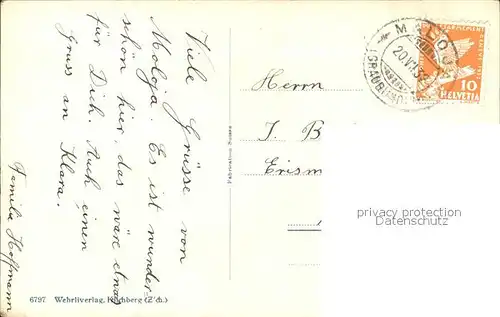 Viele Grüsse von
Maloja. Es ist wunder-
schön hier, das wäre etwas
für Dich. Auch einen
Gruss an Klara.
Familie Hoffmann
6797 Wehrliverlag, Kilchberg (Z'ch.)
Fabrication Suisse
Herrn
J. B
Erism
MALOJA
20.VII.32
(GRAUBÜNDEN)
10
HELVETIA
privacy protection
Datenschutz